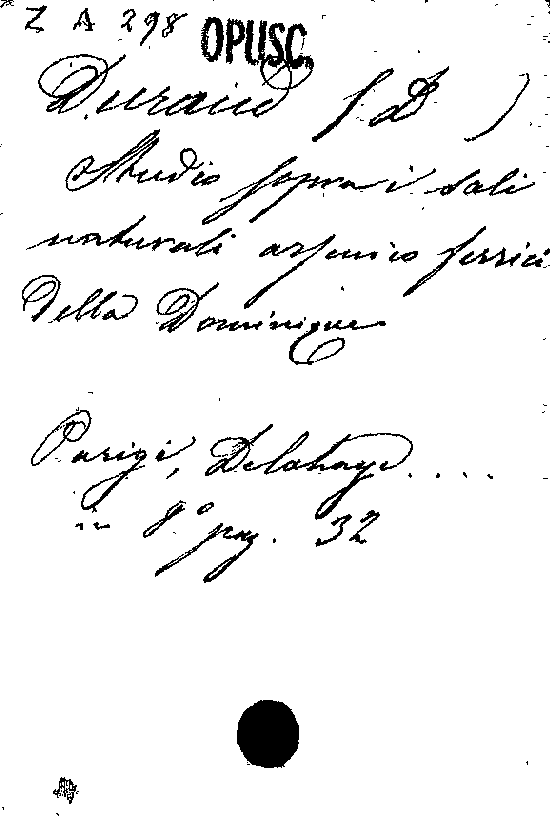 Z A 298 OPUSC.
Durand (D )
Studio sopra i sali
naturali arsenico ferrici
della Dominique
Parigi, Delahaye....
in 8° pag. 32